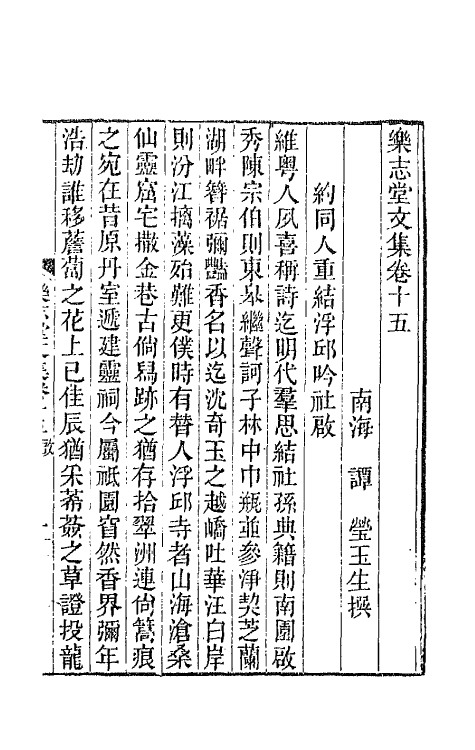 樂志堂文集卷十五
南海 譚 瑩玉生撰
約同人重結浮邱吟社啟
維粵人夙喜稱詩迄明代羣思結社孫典籍則南園啟
秀陳宗伯則東臯繼聲訶子林中巾瓶並參淨契芝蘭
湖畔簪裾彌豔香名以迄沈奇玉之越嶠吐華汪白岸
則汾江摛藻殆難更僕時有替人浮邱寺者山海滄桑
仙靈窟宅撒金巷古倘舄跡之猶存拾翠洲連尙篙痕
之宛在昔原丹室遞建靈祠今屬祇園窅然香界彌年
浩劫誰移薝蔔之花上巳佳辰猶采蒂葌之草證投龍
樂志堂文集卷十五 啟 一